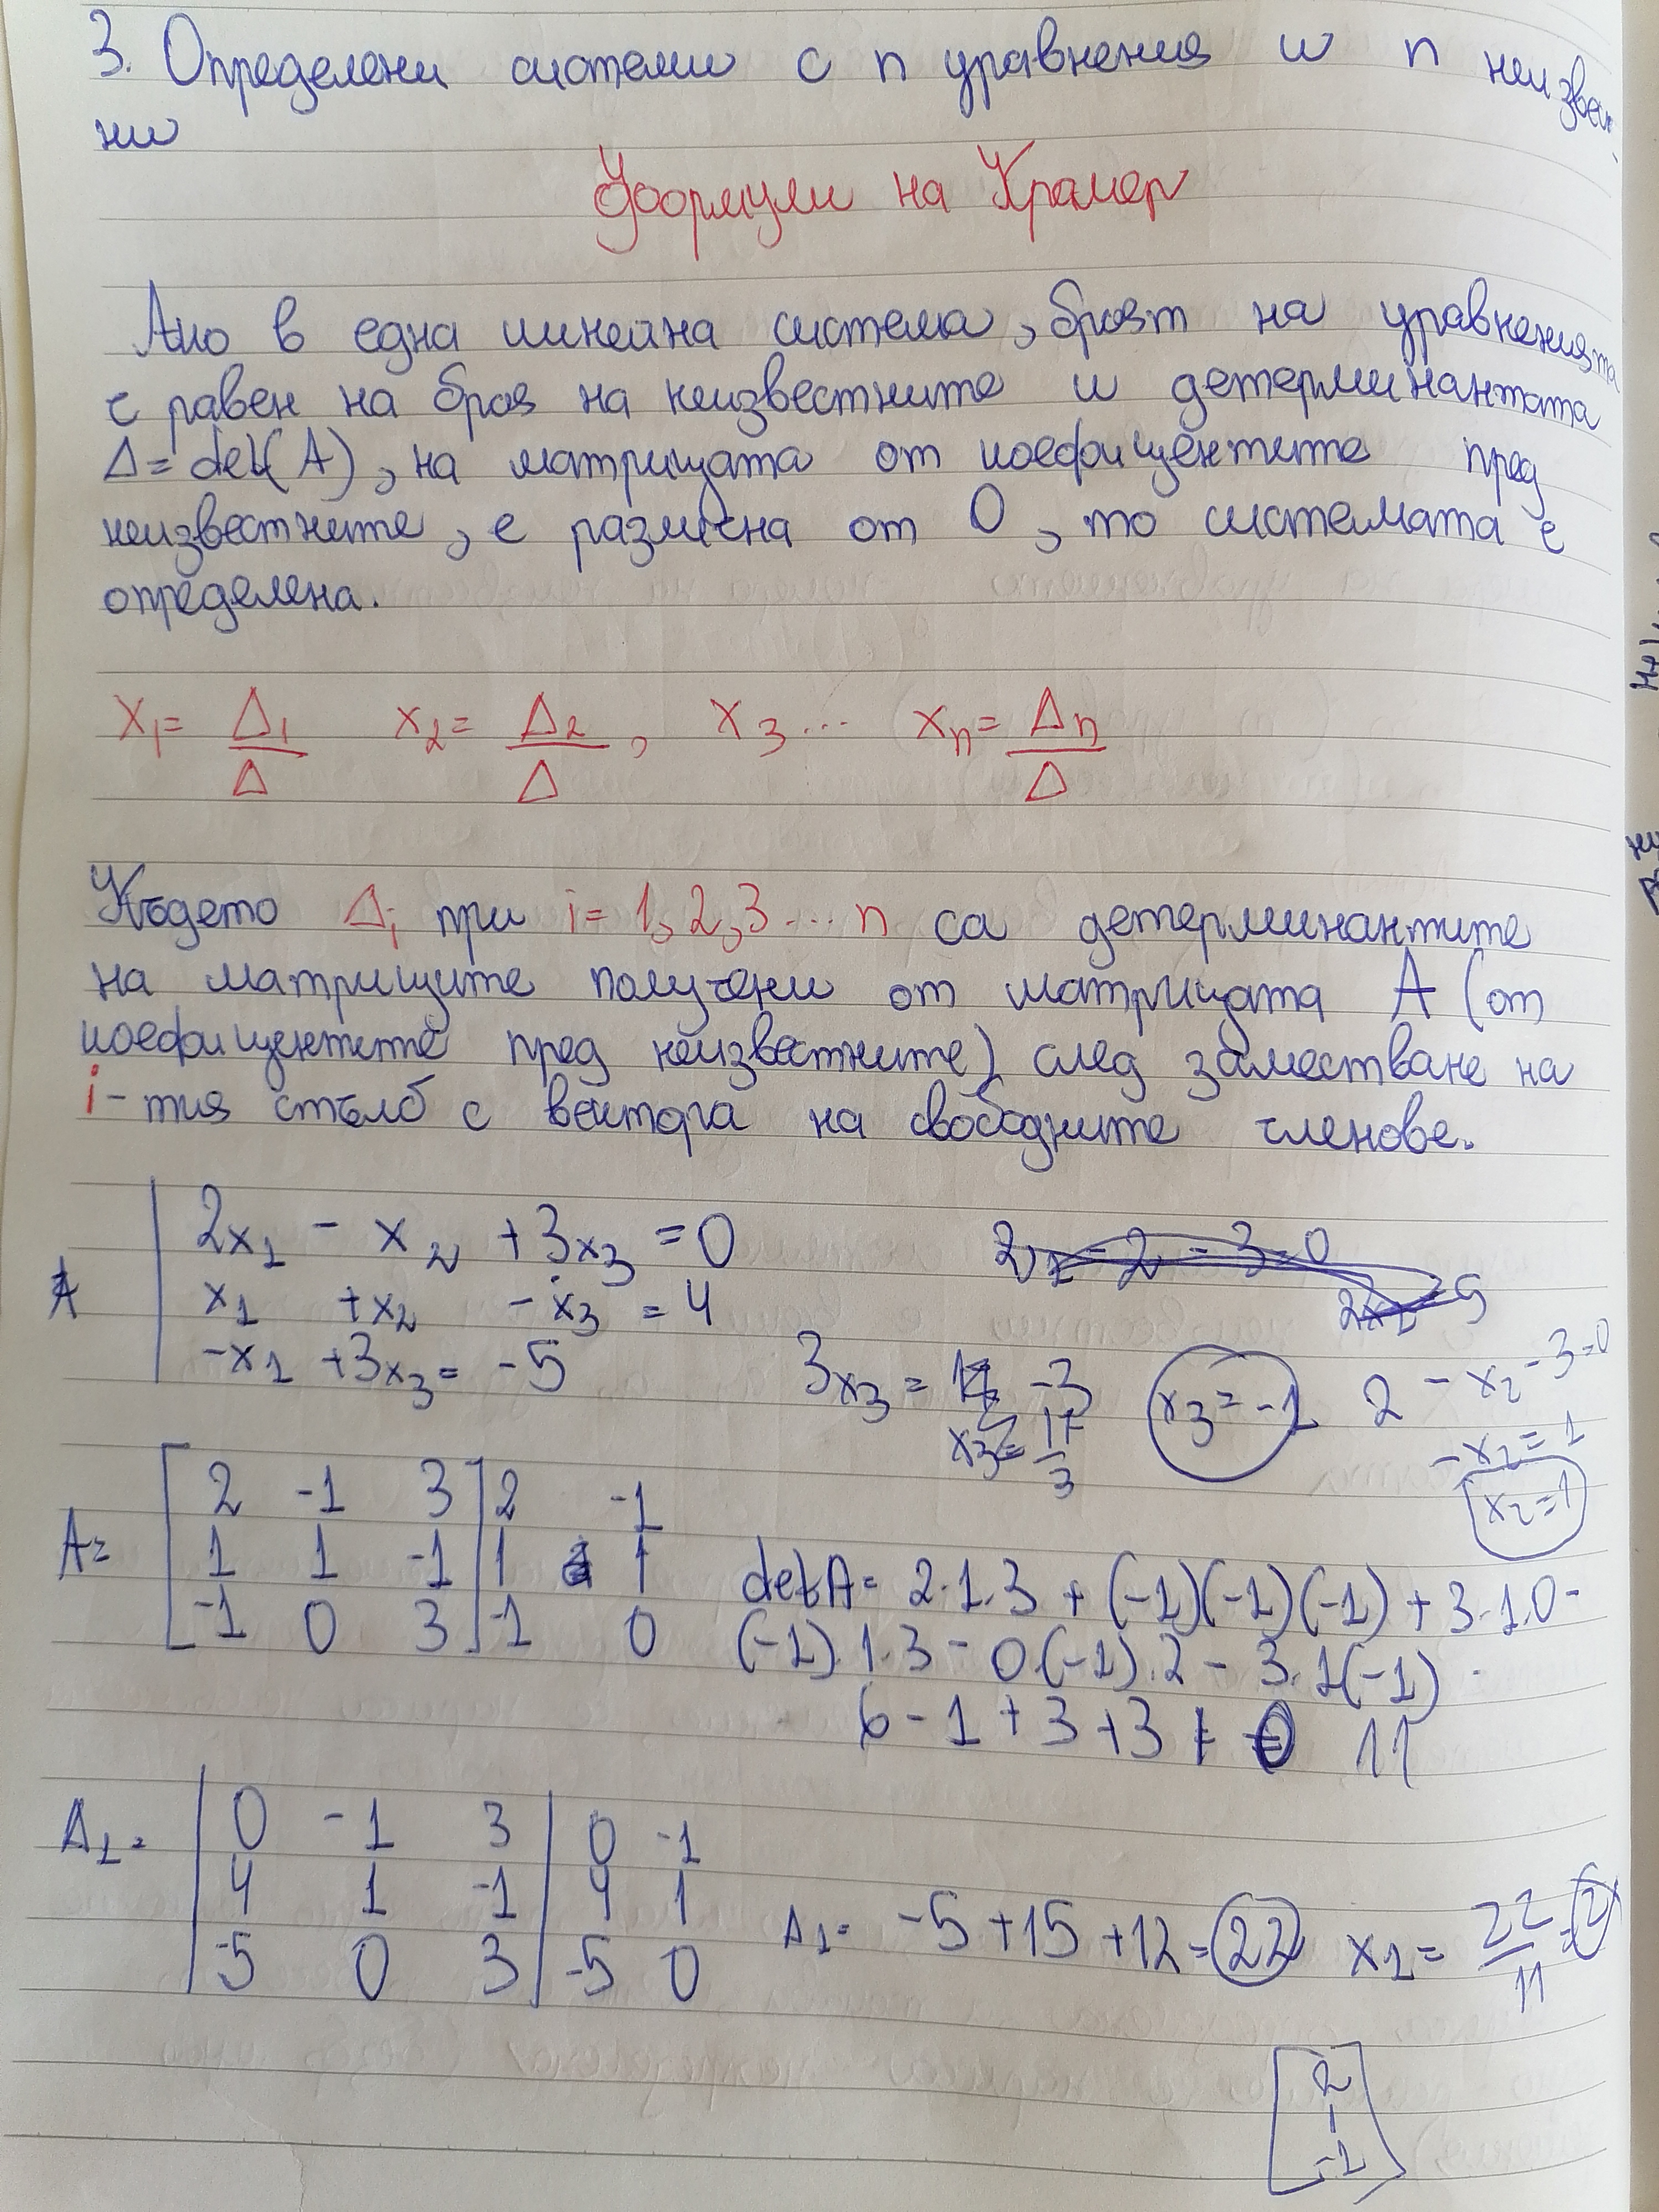 3. Определени системи с n уравнения и n неизвест-
ни
Формули на Крамер
Ако в една линейна система, броят на уравненията
е равен на броя на неизвестните и детерминантата
Δ = det(A), на матрицата от коефициентите пред
неизвестните, е различна от 0, то системата е
определена.
x₁ = Δ₁/Δ x₂ = Δ₂/Δ, x₃... xₙ = Δₙ/Δ
Където Δᵢ при i = 1,2,3...n са детерминантите
на матриците получени от матрицата A (от
коефициентите пред неизвестните) след заместване на
i-тия стълб с вектора на свободните членове.
A | 2x₁ - x₂ + 3x₃ = 0
x₁ + x₂ - x₃ = 4
-x₁ + 3x₃ = -5
3x₃ = -3 x₃ = -1 2 - x₂ - 3 = 0
x₃ = 17/3 -x₂ = 1
x₂ = 1
A = [2 -1 3] 2 -1
[1 1 -1] 1 1
[-1 0 3] -1 0
detA = 2.1.3 + (-1)(-1)(-1) + 3.1.0 -
(-1).1.3 - 0.(-1).2 - 3.1(-1)
6 - 1 + 3 + 3 11
Δ₁ = | 0 -1 3 | 0 -1
| 4 1 -1 | 4 1
| -5 0 3 | -5 0
Δ₁ = -5 + 15 + 12 = 22 x₁ = 22/11 = 2
[2
1
-1]